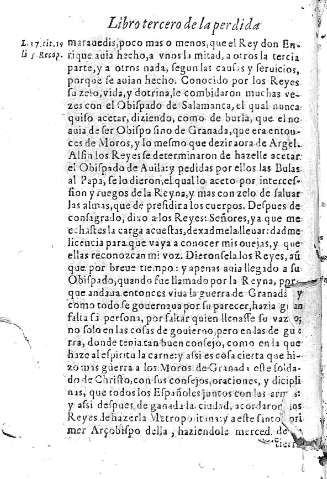 Libro tercero de la perdida
L. 17. tit. 19
li 5. Recop.
marauedis, poco mas o menos, que el Rey don En-
rique auia hecho, a vnos la mitad, a otros la tercia
parte, y a otros nada, segun las causas y seruicios,
porque se auian hecho. Conocido por los Reyes
su zelo, vida, y dotrina, le combidaron muchas ve-
zes con el Obispado de Salamanca, el qual nunca
quiso acetar, diziendo, como de burla, que el no
auia de ser Obispo sino de Granada, que era entou-
ces de Moros, y lo mesmo que dezir aora de Argel.
Al fin los Reyes se determinaron de hazelle acetar
el Obispado de Auila: y pedidas por ellos las Bulas
al Papa, se lo dieron, el qual lo aceto por interces-
sion y ruegos de la Reyna, y mas con zelo de saluar
las almas, que de presidir a los cuerpos. Despues de
consagrado, dixo a los Reyes: Señores, ya que me
echastes la carga acuestas, dexadmela lleuar: dadme
licencia para que vaya a conocer mis ouejas, y que
ellas reconozcan mi voz. Dieronsela los Reyes, aú
que por breue tiempo: y apenas auia llegado a su
Obispado, quando fue llamado por la Reyna, por
que andaua entonces viua la guerra de Granada y
como todo se gouernaua por su parecer, hazia gran
falta su persona, por faltar quien llenasse su vazio;
no solo en las cosas de gouierno, pero en las de gue
rra, donde tenia tan buen consejo, como en la que
haze al espiritu la carne: y assi es cosa cierta que hi-
zo mas guerra a los Moros de Granada este solda-
do de Christo, con sus consejos, oraciones, y dicipli
nas, que todos los Españoles juntos con las armas:
y assi despues de ganada la ciudad, acordaron los
Reyes de hazerla Metropolitana: y a este santo pri
mer Arçobispo della, haziendole merced de